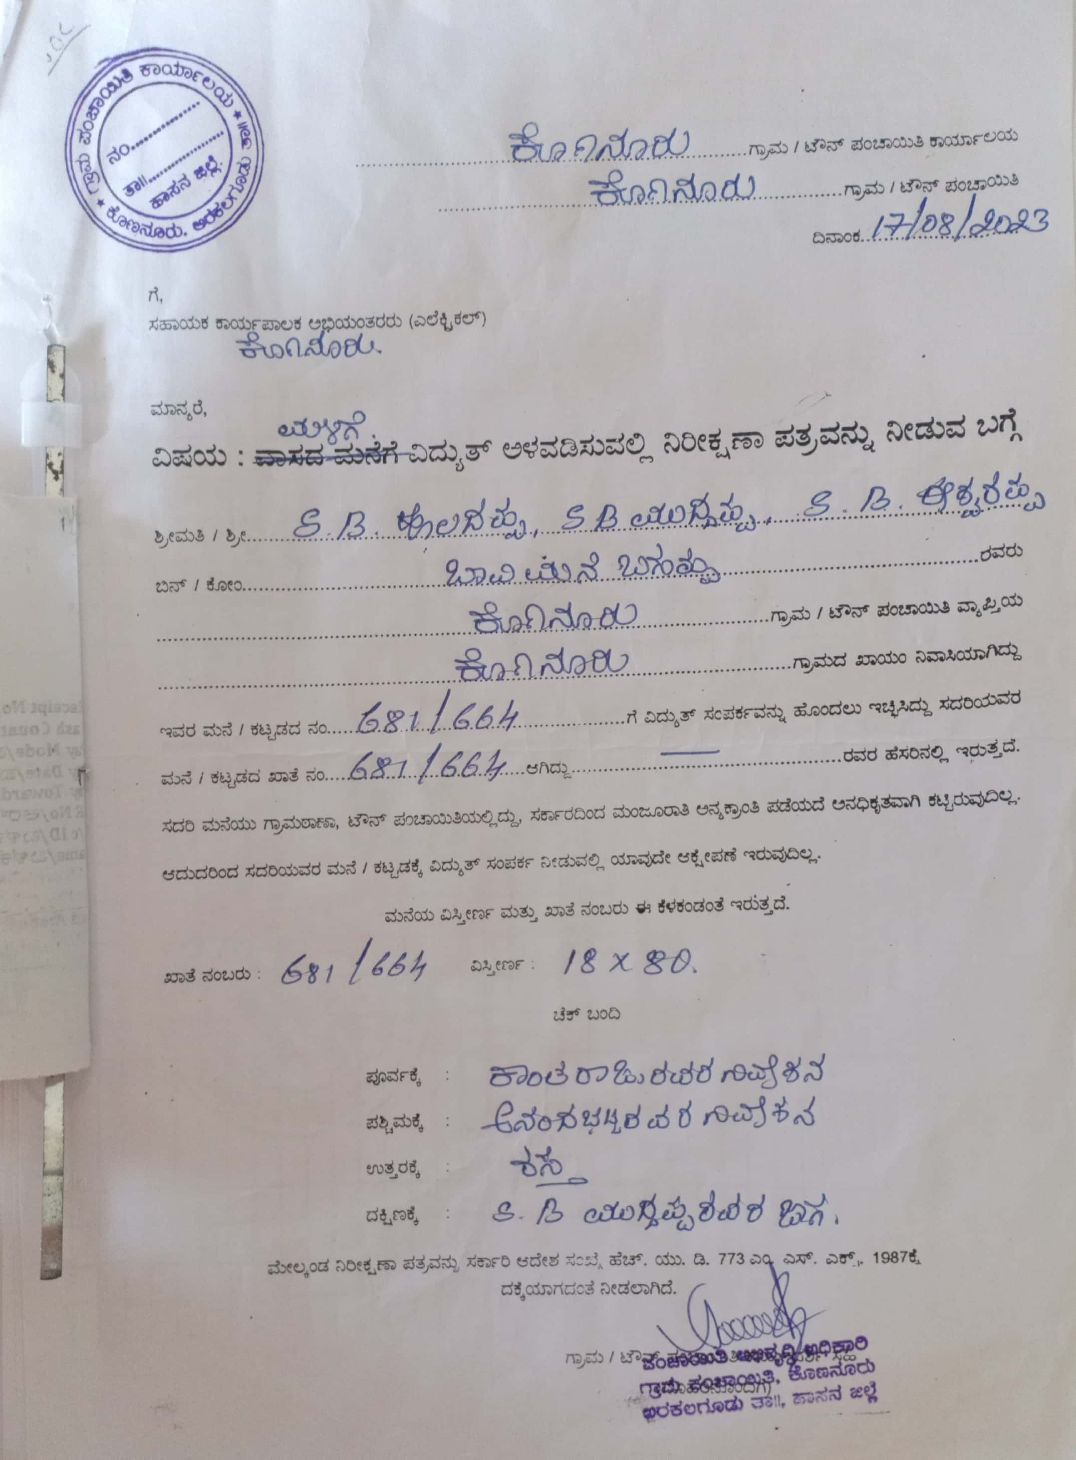 ಗ್ರಾಮ ಪಂಚಾಯಿತಿ ಕಾರ್ಯಾಲಯ
ಕೊಣನೂರು, ಅರಕಲಗೂಡು ತಾ||
ನಂ..................
ತಾ||..................
ಹಾಸನ ಜಿಲ್ಲೆ.
ಕೊಣನೂರು ಗ್ರಾಮ / ಟೌನ್ ಪಂಚಾಯಿತಿ ಕಾರ್ಯಾಲಯ
ಕೊಣನೂರು ಗ್ರಾಮ / ಟೌನ್ ಪಂಚಾಯಿತಿ
ದಿನಾಂಕ 17/08/2023
ಗೆ,
ಸಹಾಯಕ ಕಾರ್ಯಪಾಲಕ ಅಭಿಯಂತರರು (ಎಲೆಕ್ಟ್ರಿಕಲ್)
ಕೊಣನೂರು.
ಮಾನ್ಯರೆ,
ಮಳಿಗೆ
ವಿಷಯ : ವಾಸದ ಮನೆಗೆ ವಿದ್ಯುತ್ ಅಳವಡಿಸುವಲ್ಲಿ ನಿರೀಕ್ಷಣಾ ಪತ್ರವನ್ನು ನೀಡುವ ಬಗ್ಗೆ
ಶ್ರೀಮತಿ / ಶ್ರೀ S.B. ಹಾಲಪ್ಪ, S B ಮುದ್ದಪ್ಪ, S. B. ಈಶ್ವರಪ್ಪ
ಬಿನ್ / ಕೋಂ ಬಾವಿಮನೆ ರವರು
ಕೊಣನೂರು ಗ್ರಾಮ / ಟೌನ್ ಪಂಚಾಯಿತಿ ವ್ಯಾಪ್ತಿಯ
ಕೊಣನೂರು ಗ್ರಾಮದ ಖಾಯಂ ನಿವಾಸಿಯಾಗಿದ್ದು
ಇವರ ಮನೆ / ಕಟ್ಟಡದ ನಂ 681/664 ಗೆ ವಿದ್ಯುತ್ ಸಂಪರ್ಕವನ್ನು ಹೊಂದಲು ಇಚ್ಛಿಸಿದ್ದು ಸದರಿಯವರ
ಮನೆ / ಕಟ್ಟಡದ ಖಾತೆ ನಂ 681/664 ಆಗಿದ್ದು — ರವರ ಹೆಸರಿನಲ್ಲಿ ಇರುತ್ತದೆ.
ಸದರಿ ಮನೆಯು ಗ್ರಾಮಠಾಣಾ, ಟೌನ್ ಪಂಚಾಯಿತಿಯಲ್ಲಿದ್ದು, ಸರ್ಕಾರದಿಂದ ಮಂಜೂರಾತಿ ಅನ್ಯಕ್ರಾಂತಿ ಪಡೆಯದೆ ಅನಧಿಕೃತವಾಗಿ ಕಟ್ಟಿರುವುದಿಲ್ಲ.
ಆದುದರಿಂದ ಸದರಿಯವರ ಮನೆ / ಕಟ್ಟಡಕ್ಕೆ ವಿದ್ಯುತ್ ಸಂಪರ್ಕ ನೀಡುವಲ್ಲಿ ಯಾವುದೇ ಆಕ್ಷೇಪಣೆ ಇರುವುದಿಲ್ಲ.
ಮನೆಯ ವಿಸ್ತೀರ್ಣ ಮತ್ತು ಖಾತೆ ನಂಬರು ಈ ಕೆಳಕಂಡಂತೆ ಇರುತ್ತದೆ.
ಖಾತೆ ನಂಬರು : 681/664 ವಿಸ್ತೀರ್ಣ : 18 x 80.
ಚೆಕ್ ಬಂದಿ
ಪೂರ್ವಕ್ಕೆ : ಕಾಂತರಾಜುರವರ ನಿವೇಶನ
ಪಶ್ಚಿಮಕ್ಕೆ : ನಿವೇಶನ
ಉತ್ತರಕ್ಕೆ : ರಸ್ತೆ
ದಕ್ಷಿಣಕ್ಕೆ : S. B ಮುದ್ದಪ್ಪರವರ ಜಾಗ.
ಮೇಲ್ಕಂಡ ನಿರೀಕ್ಷಣಾ ಪತ್ರವನ್ನು ಸರ್ಕಾರಿ ಆದೇಶ ಸಂಖ್ಯೆ ಹೆಚ್. ಯು. ಡಿ. 773 ಎಂ. ಎಸ್. ಎಕ್ಸ್. 1987ಕ್ಕೆ
ದಕ್ಕೆಯಾಗದಂತೆ ನೀಡಲಾಗಿದೆ.
ಗ್ರಾಮ / ಟೌನ್
ಪಂಚಾಯಿತಿ ಅಭಿವೃದ್ಧಿ ಅಧಿಕಾರಿ
ಗ್ರಾಮ ಪಂಚಾಯಿತಿ, ಕೊಣನೂರು
ಅರಕಲಗೂಡು ತಾ||, ಹಾಸನ ಜಿಲ್ಲೆ